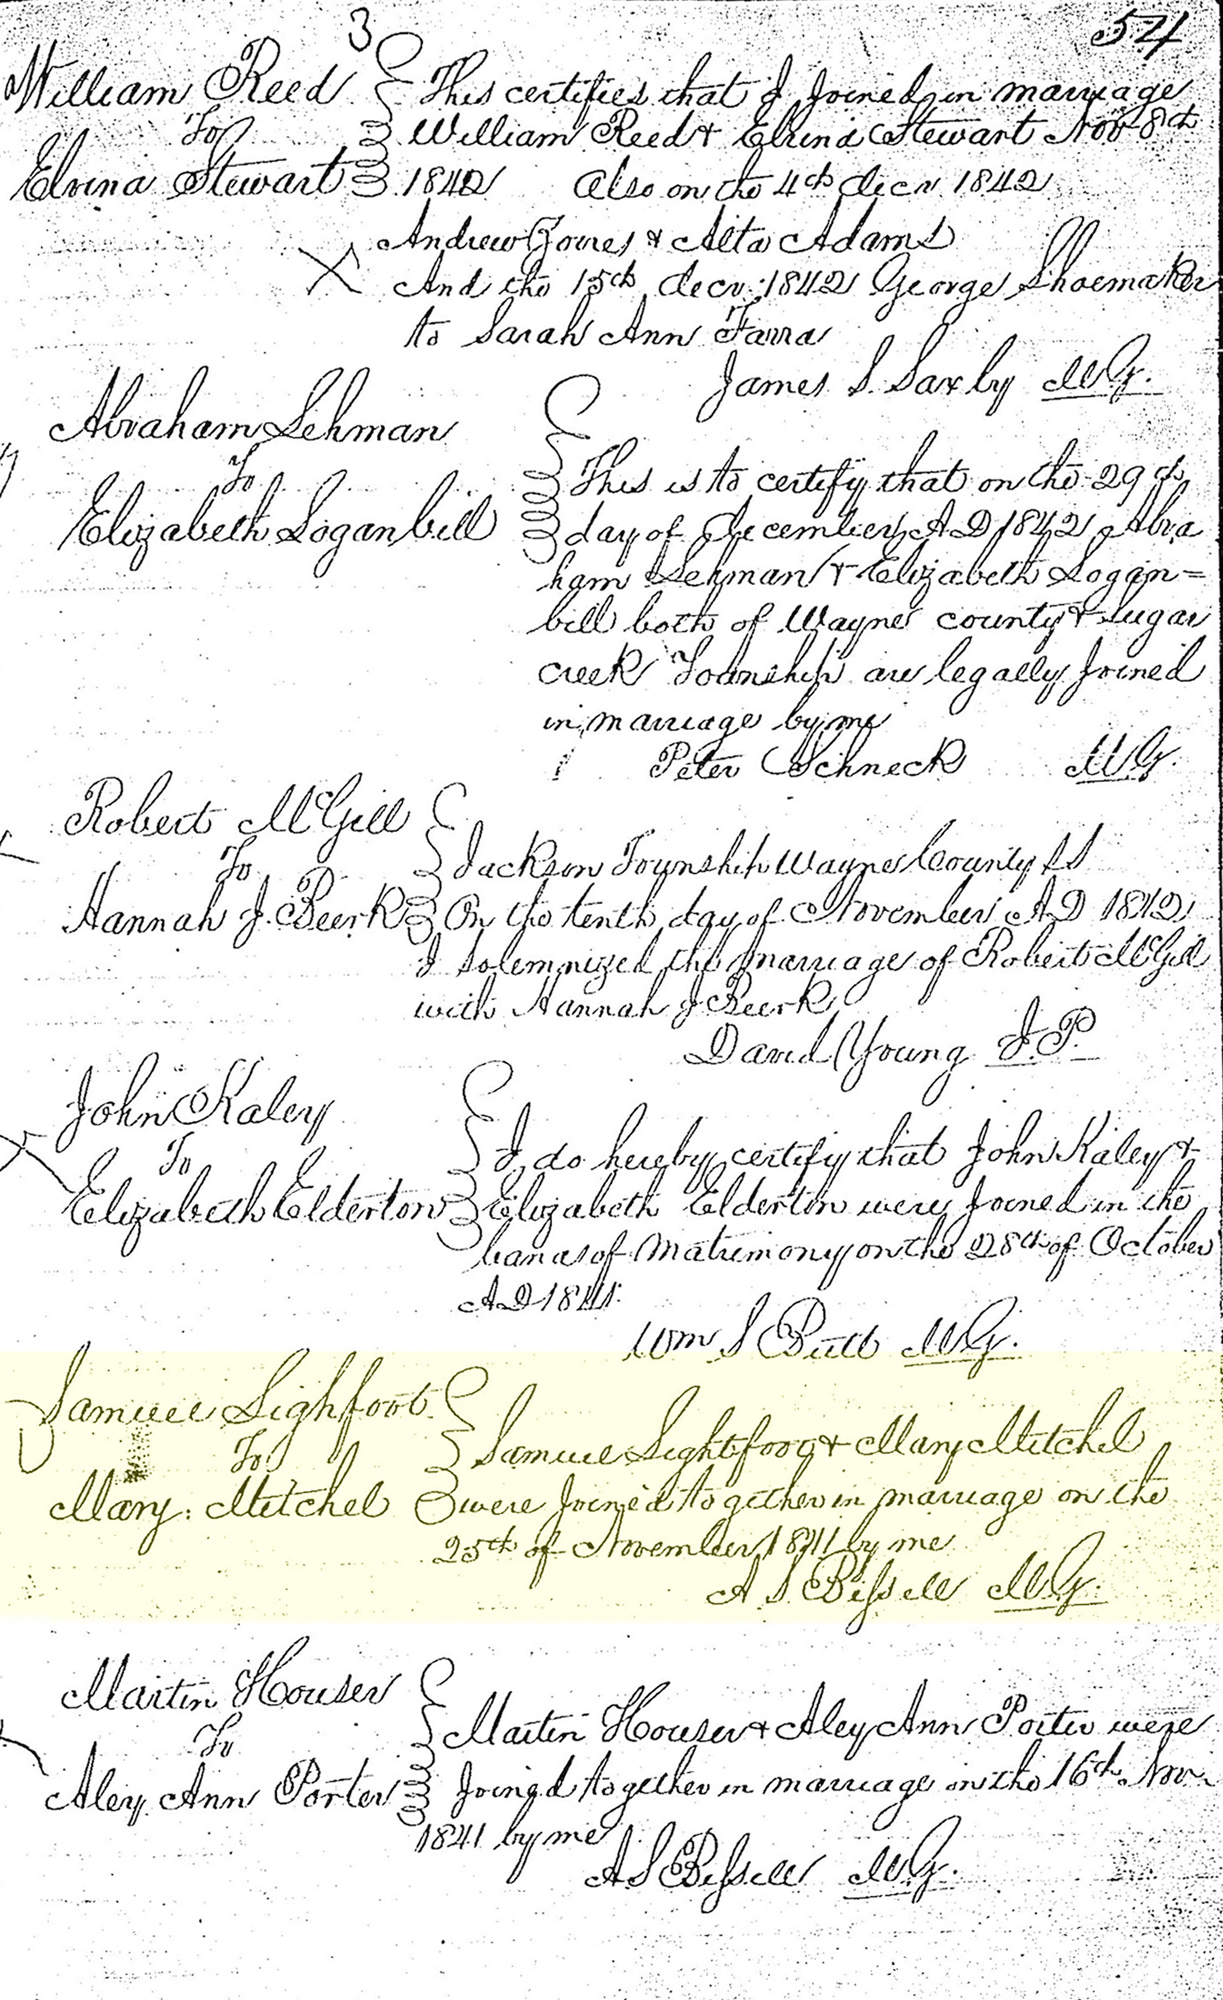 3
54
William Reed
To
Elvina Stewart
This certifies that I Joined in marriage
William Reed & Elvina Stewart Nov 8th
1842 Also on the 4th decr 1842
Andrew Jones & Alta Adams
And the 15th decr. 1842 George Shoemaker
to Sarah Ann Farra
James S Saxby MG.
Abraham Lehman
To
Elizabeth Loganbill
This is to certify that on the 29th
day of December AD 1842 Abra
ham Lehman & Elizabeth Logan=
bill both of Wayne county & Sugar
creek Township are legally Joined
in marriage by me
Peter Schneck MG.
Robert McGill
To
Hannah J. Beerk
Jackson Township Wayne County SS
On the tenth day of November AD 1842
I Solemnized the marriage of Robert McGill
with Hannah J Beerk
David Young J.P.
John Kaley
To
Elizabeth Elderton
I do hereby certify that John Kaley &
Elizabeth Elderton were Joined in the
bands of Matrimony on the 28th of October
AD 1841.
Wm S Butt MG.
Samuel Lighfoot.
To
Mary. Mitchel
Samuel Lightfoot & Mary Mitchel
were Joined together in marriage on the
25th of November 1841 by me
A S Bissell MG.
Martin Houser
To
Aley Ann Porter
Martin Houser & Aley Ann Porter were
Joined together in marriage on the 16th Nov.
1841 by me
A S Bissell MG.